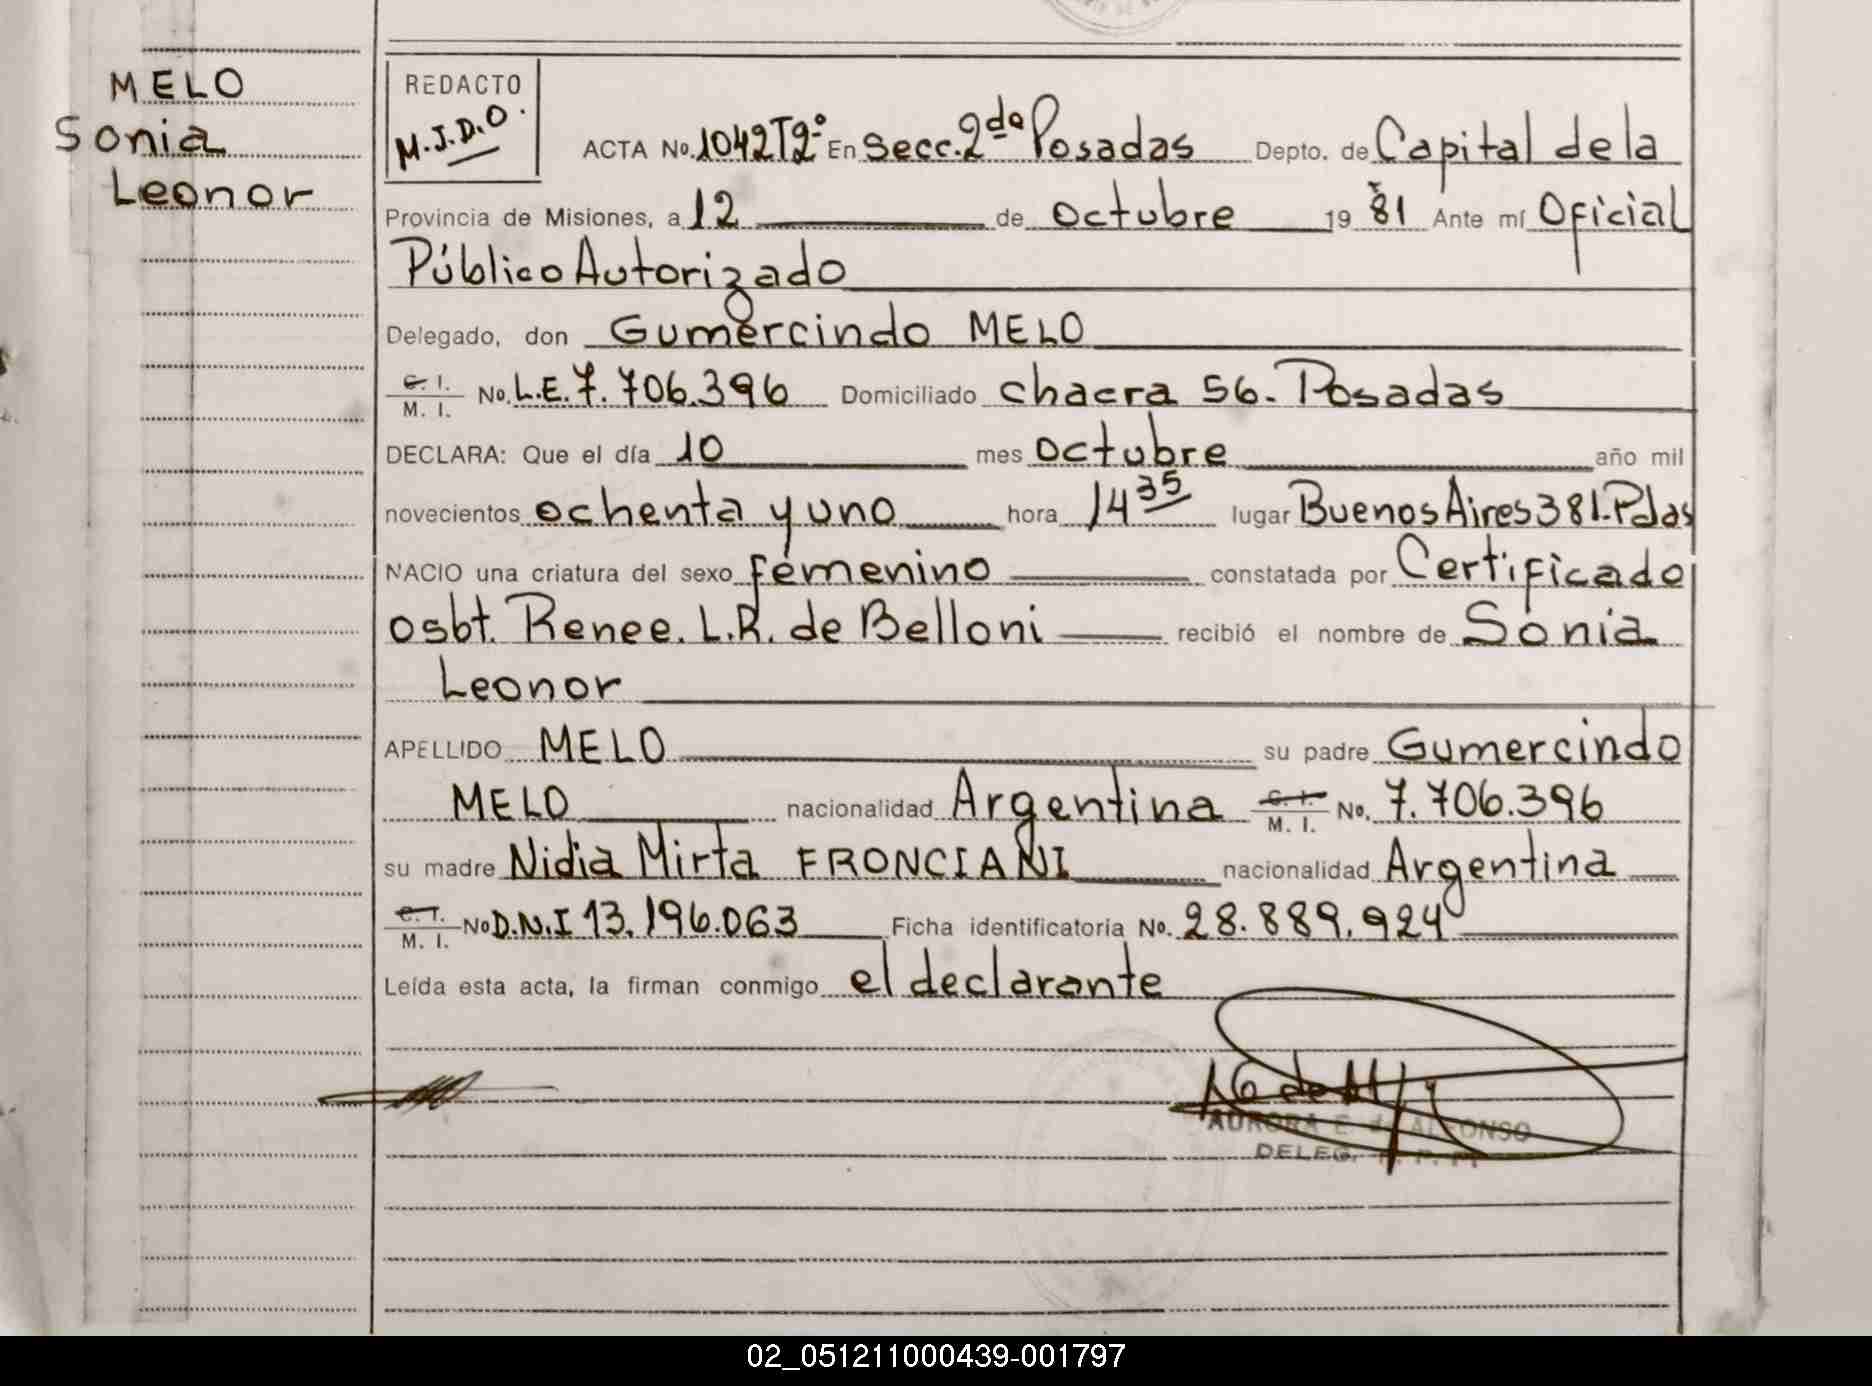 MELO
Sonia
Leonor
REDACTO
M.J.D.O.
ACTA No. 1042T2º En Secc. 2da Posadas Depto. de Capital de la
Provincia de Misiones, a 12 de octubre 19 81 Ante mí Oficial
Público Autorizado
Delegado, don Gumercindo MELO
C. I. / M. I. No. L.E. 7.706.396 Domiciliado chacra 56. Posadas
DECLARA: Que el día 10 mes octubre año mil
novecientos ochenta y uno hora 14 35 lugar Buenos Aires 381. Pdas
NACIO una criatura del sexo femenino constatada por Certificado
osbt. Renee. L.R. de Belloni recibió el nombre de Sonia
Leonor
APELLIDO MELO su padre Gumercindo
MELO nacionalidad Argentina C. I. / M. I. No. 7.706.396
su madre Nidia Mirta FRONCIANI nacionalidad Argentina
C. I. / M. I. No D.N.I 13.196.063 Ficha identificatoria No. 28.889.924
Leída esta acta, la firman conmigo el declarante
AURORA E. de ALFONSO
DELEG.
02_051211000439-001797